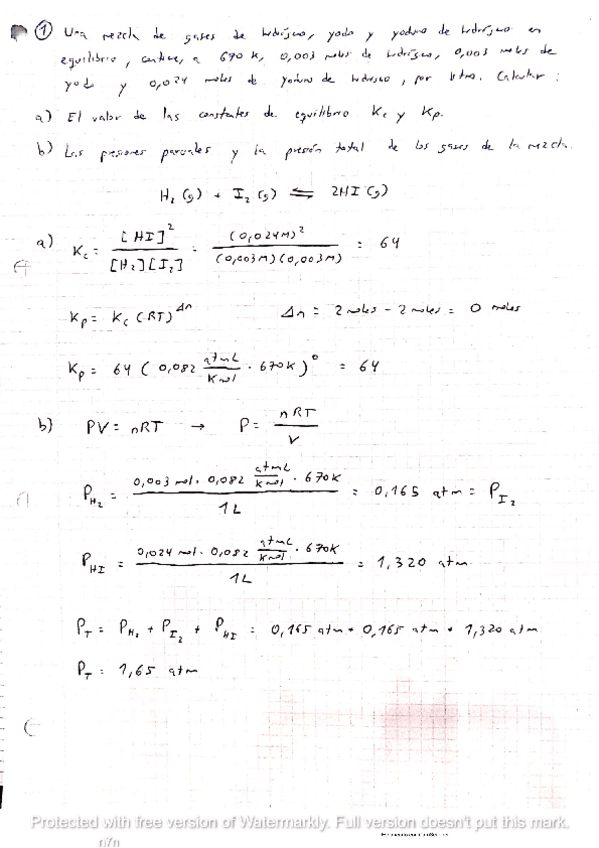 ① Una mezcla de gases de hidrógeno, yodo y yoduro de hidrógeno en
equilibrio, contiene, a 670 K, 0,003 moles de hidrógeno, 0,003 moles de
yodo y 0,024 moles de yoduro de hidrógeno, por litro. Calcular:
a) El valor de las constantes de equilibrio Kc y Kp.
b) Las presiones parciales y la presión total de los gases de la mezcla.
H₂ (g) + I₂ (g) ⇌ 2HI (g)
a) Kc = [HI]² / [H₂][I₂] = (0,024M)² / (0,003M)(0,003M) = 64
Kp = Kc (RT)^Δn Δn = 2 moles - 2 moles = 0 moles
Kp = 64 (0,082 atmL/Kmol · 670K)⁰ = 64
b) PV = nRT → P = nRT / V
P_H₂ = 0,003 mol · 0,082 atmL/Kmol · 670K / 1L = 0,165 atm = P_I₂
P_HI = 0,024 mol · 0,082 atmL/Kmol · 670K / 1L = 1,320 atm
P_T = P_H₂ + P_I₂ + P_HI = 0,165 atm + 0,165 atm + 1,320 atm
P_T = 1,65 atm
Protected with free version of Watermarkly. Full version doesn't put this mark.